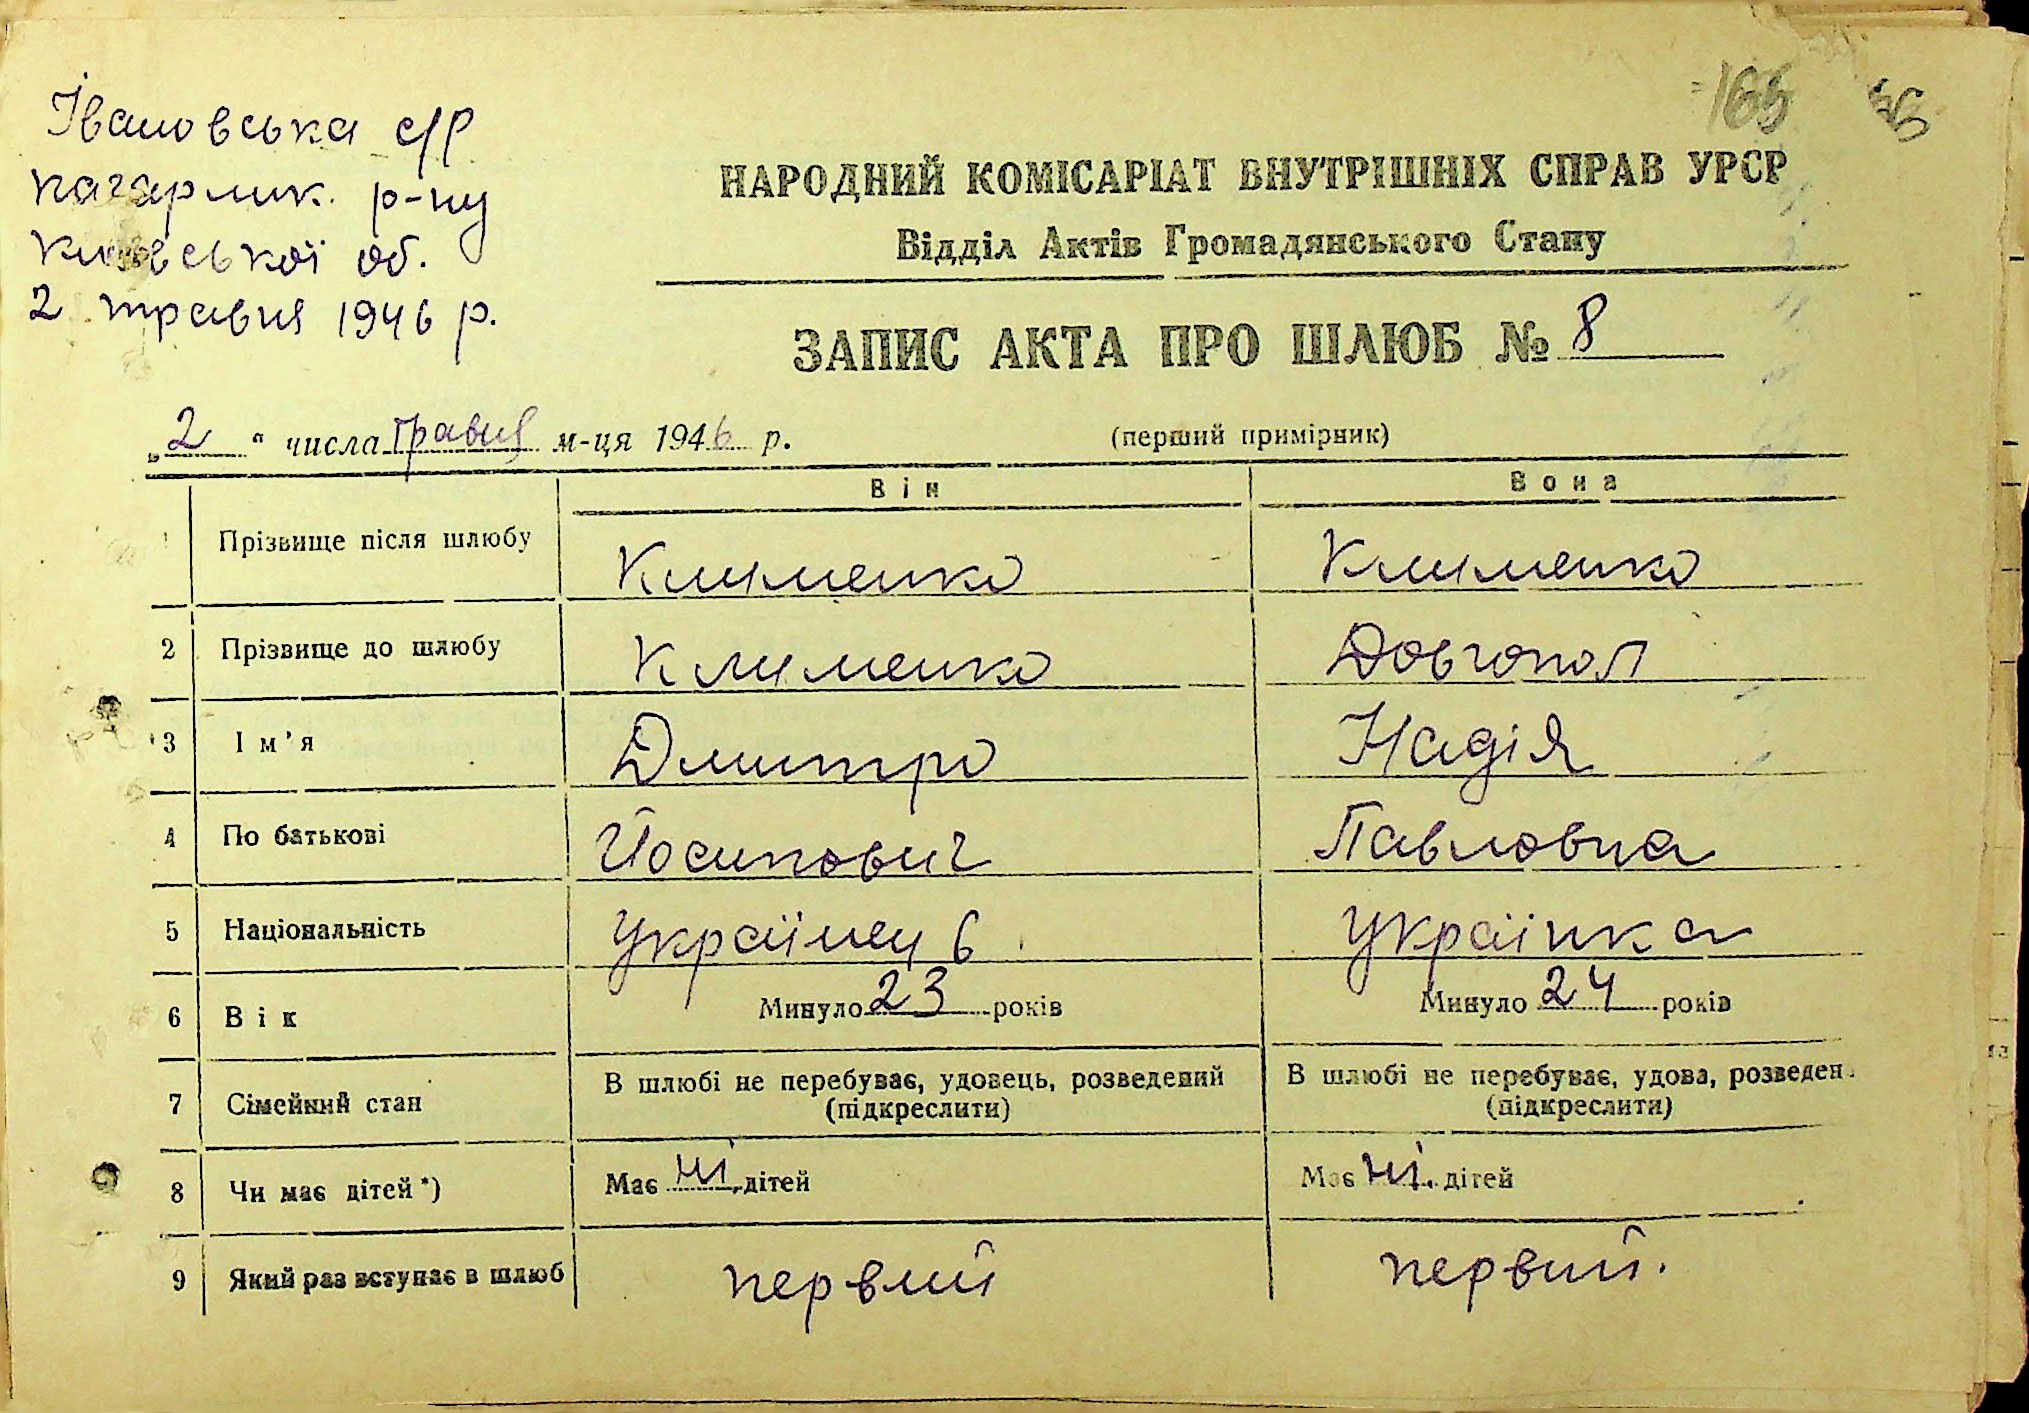 Івановська с/р
Кагарлик. р-ну
Київської об.
2 травня 1946 р.
165
НАРОДНИЙ КОМІСАРІАТ ВНУТРІШНІХ СПРАВ УРСР
Відділ Актів Громадянського Стану
ЗАПИС АКТА ПРО ШЛЮБ № 8
„2“ числа травня м-ця 1946 р. (перший примірник)
Він Вона
1 Прізвище після шлюбу Клименко Клименко
2 Прізвище до шлюбу Клименко Довгопол
3 Ім'я Дмитро Надія
4 По батькові Йосипович Павловна
5 Національність Українець Українка
6 Вік Минуло 23 років Минуло 24 років
7 Сімейний стан В шлюбі не перебуває, удовець, розведений (підкреслити) В шлюбі не перебуває, удова, розведен. (підкреслити)
8 Чи має дітей *) Має ні дітей Має ні. дітей
9 Який раз вступає в шлюб первий первий.